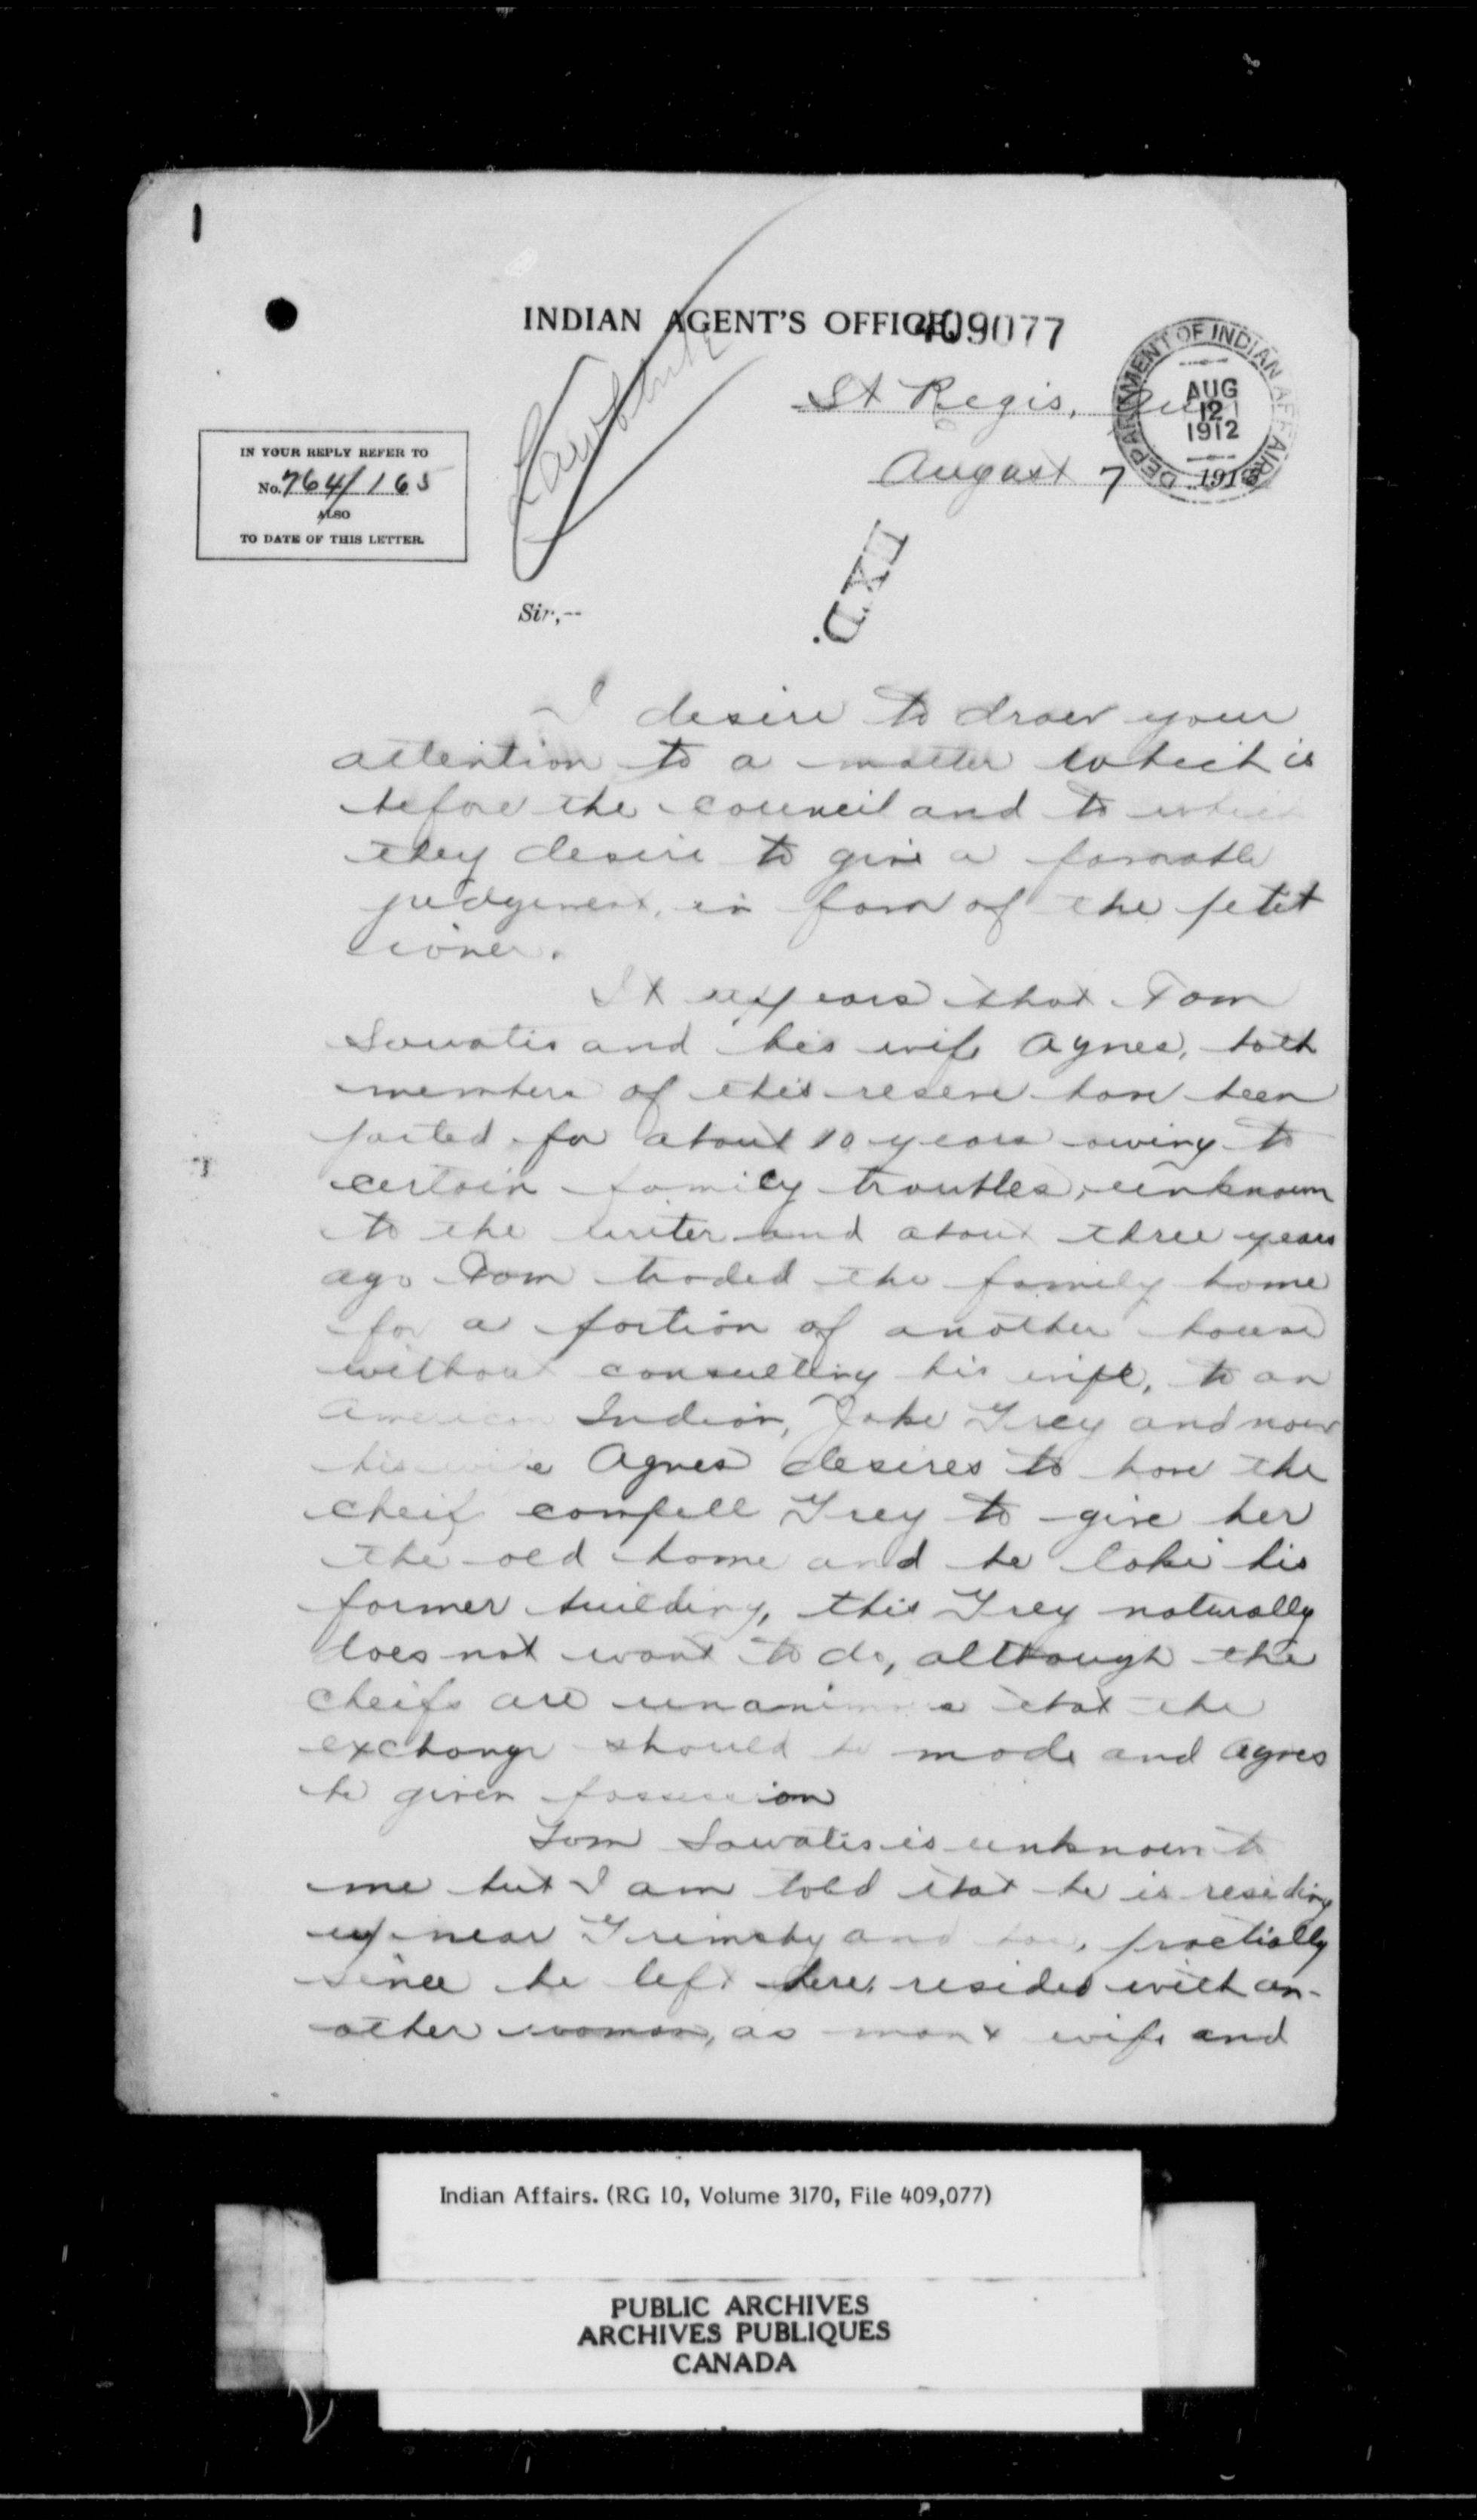 INDIAN AGENT'S OFFICE,
409077
St Regis, Que
DEPARTMENT OF INDIAN AFFAIRS
AUG
12
1912
August 7 191
IN YOUR REPLY REFER TO
No. 764/165
ALSO
TO DATE OF THIS LETTER.
Sir,--
I desire to draw your
attention to a matter which is
before the council and to which
they desire to give a favorable
judgement, in favor of the petit
ioner.
It appears that Tom
Sawatis and his wife Agnes, both
members of this reserve have been
parted for about 10 years owing to
certain family troubles, unknown
to the writer and about three years
ago Tom traded the family home
for a portion of another house
without consulting his wife, to an
American Indian, Jake Grey and now
his wife Agnes desires to have the
cheif compell Grey to give her
the old home and he take his
former building, this Grey naturally
does not want to do, although the
cheifs are unanimous that the
exchange should be made and Agnes
be given possession
Tom Sawatis is unknown to
me but I am told that he is residing
up near Grimsby and has, practially
since he left here, resided with an-
other woman, as man & wife and
Indian Affairs. (RG 10, Volume 3170, File 409,077)
PUBLIC ARCHIVES
ARCHIVES PUBLIQUES
CANADA